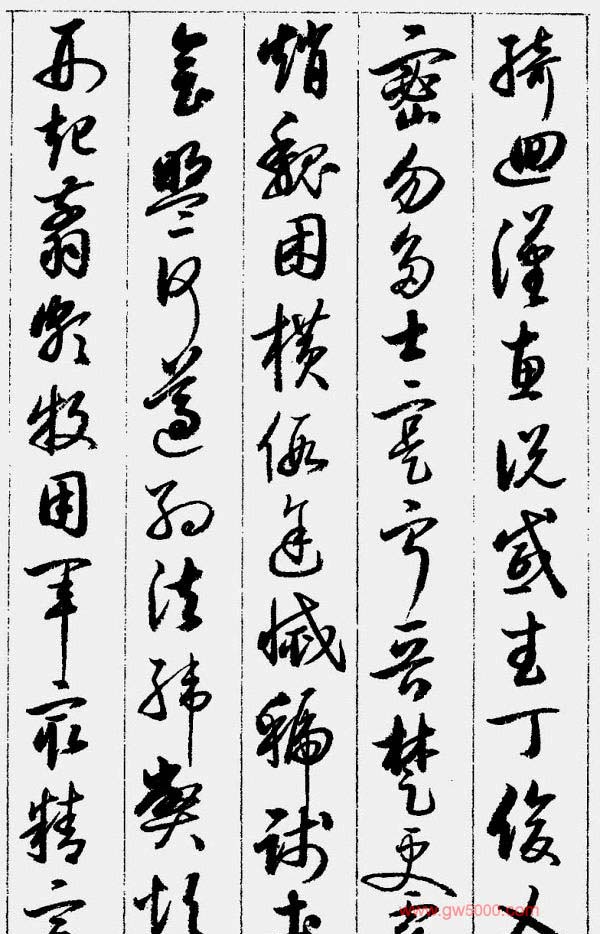 綺迴漢惠說感武丁俊乂
密勿多士寔寧晉楚更
趙魏困橫假途滅虢踐土
會盟何遵約法韓弊煩
刑起翦頗牧用軍最精宣
www.gw5000.com